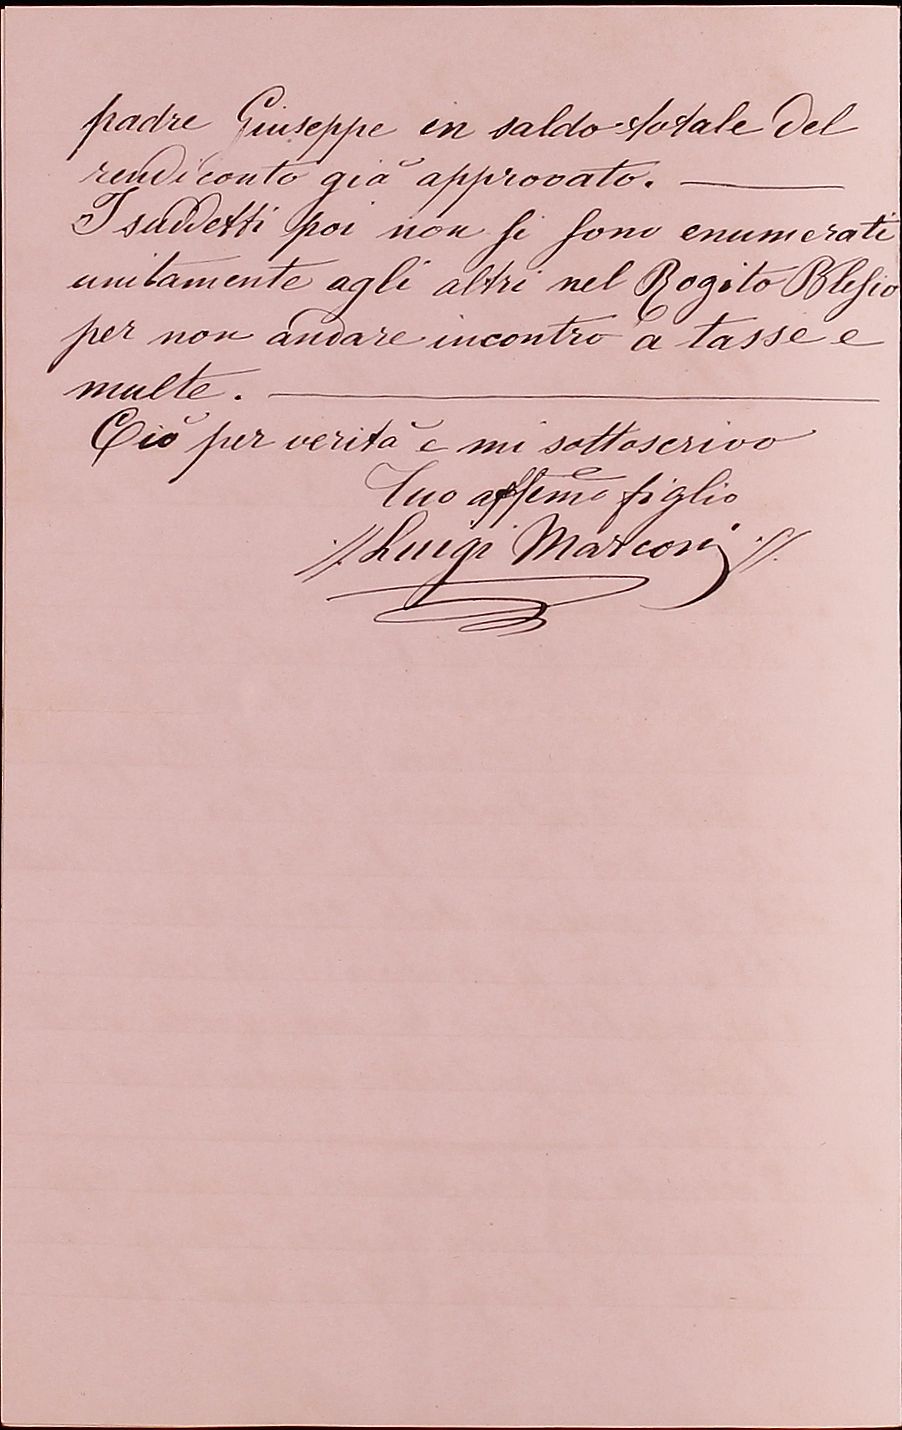 padre Giuseppe in saldo totale del
rendiconto già approvato.
I suddetti poi non si sono enumerati
unitamente agli altri nel Rogito Blesio
per non andare incontro a tasse e
multe.
Ciò per verità e mi sottoscrivo
Tuo affemo figlio
Luigi Marconi